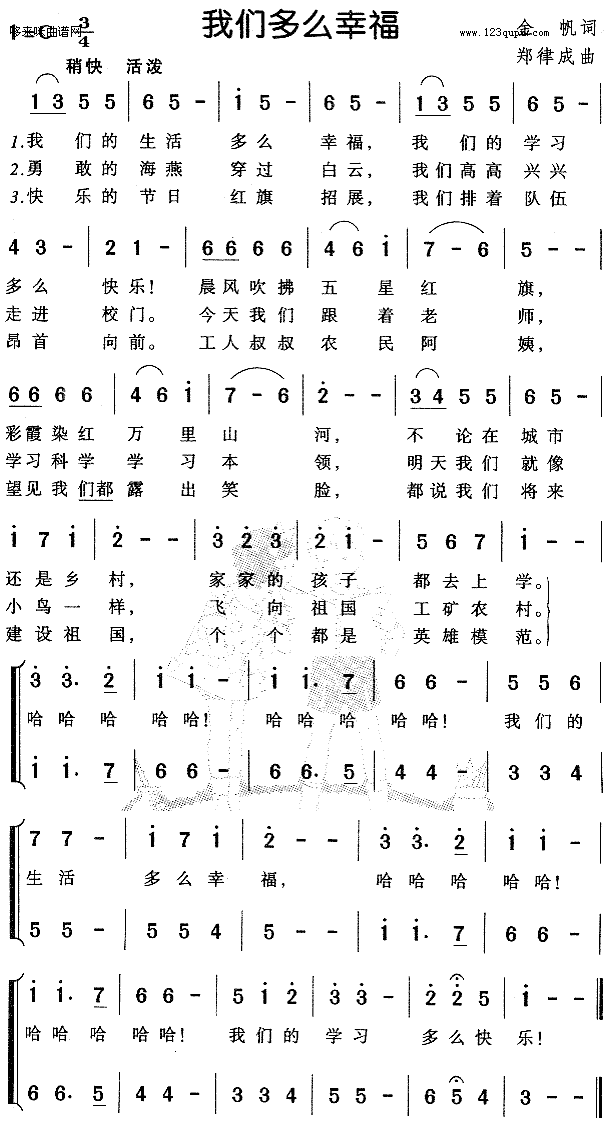 我们多么幸福
哆来咪曲谱网
www.123qupu.com
1=C 3/4
金 帆词
郑律成曲
稍快 活泼
1 3 5 5 | 6 5 - | i 5 - | 6 5 - | 1 3 5 5 | 6 5 - |
1.我 们的 生活 多么 幸福, 我 们的 学习
2.勇 敢的 海燕 穿过 白云, 我们高高 兴兴
3.快 乐的 节日 红旗 招展, 我们排着 队伍
4 3 - | 2 1 - | 6 6 6 6 | 4 6 i | 7 - 6 | 5 - - |
多么 快乐! 晨风吹拂 五星红 旗,
走进 校门。 今天我们 跟着老 师,
昂首 向前。 工人叔叔 农民阿 姨,
6 6 6 6 | 4 6 i | 7 - 6 | 2̇ - - | 3 4 5 5 | 6 5 - |
彩霞染红 万里山 河, 不论在 城市
学习科学 学习本 领, 明天我们 就像
望见我们都 露出笑 脸, 都说我们 将来
i 7 i | 2̇ - - | 3̇ 2̇ 3̇ | 2̇ i - | 5 6 7 | i - - |
还是乡 村, 家家的 孩子 都去上 学。
小鸟一 样, 飞向祖国 工矿农 村。
建设祖 国, 个个都是 英雄模 范。
3̇ 3̇. 2̇ | i i - | i i. 7 | 6 6 - | 5 5 6 |
哈哈 哈 哈哈! 哈哈 哈 哈哈! 我们的
i i. 7 | 6 6 - | 6 6. 5 | 4 4 - | 3 3 4 |
7 7 - | i 7 i | 2̇ - - | 3̇ 3̇. 2̇ | i i - |
生活 多么幸 福, 哈哈 哈 哈哈!
5 5 - | 5 5 4 | 5 - - | i i. 7 | 6 6 - |
i i. 7 | 6 6 - | 5 i 2̇ | 3̇ 3̇ - | 2̇ 2̇ 5 | i - - ‖
哈哈 哈 哈哈! 我们的 学习 多么快 乐!
6 6. 5 | 4 4 - | 3 3 4 | 5 5 - | 6 5 4 | 3 - - ‖